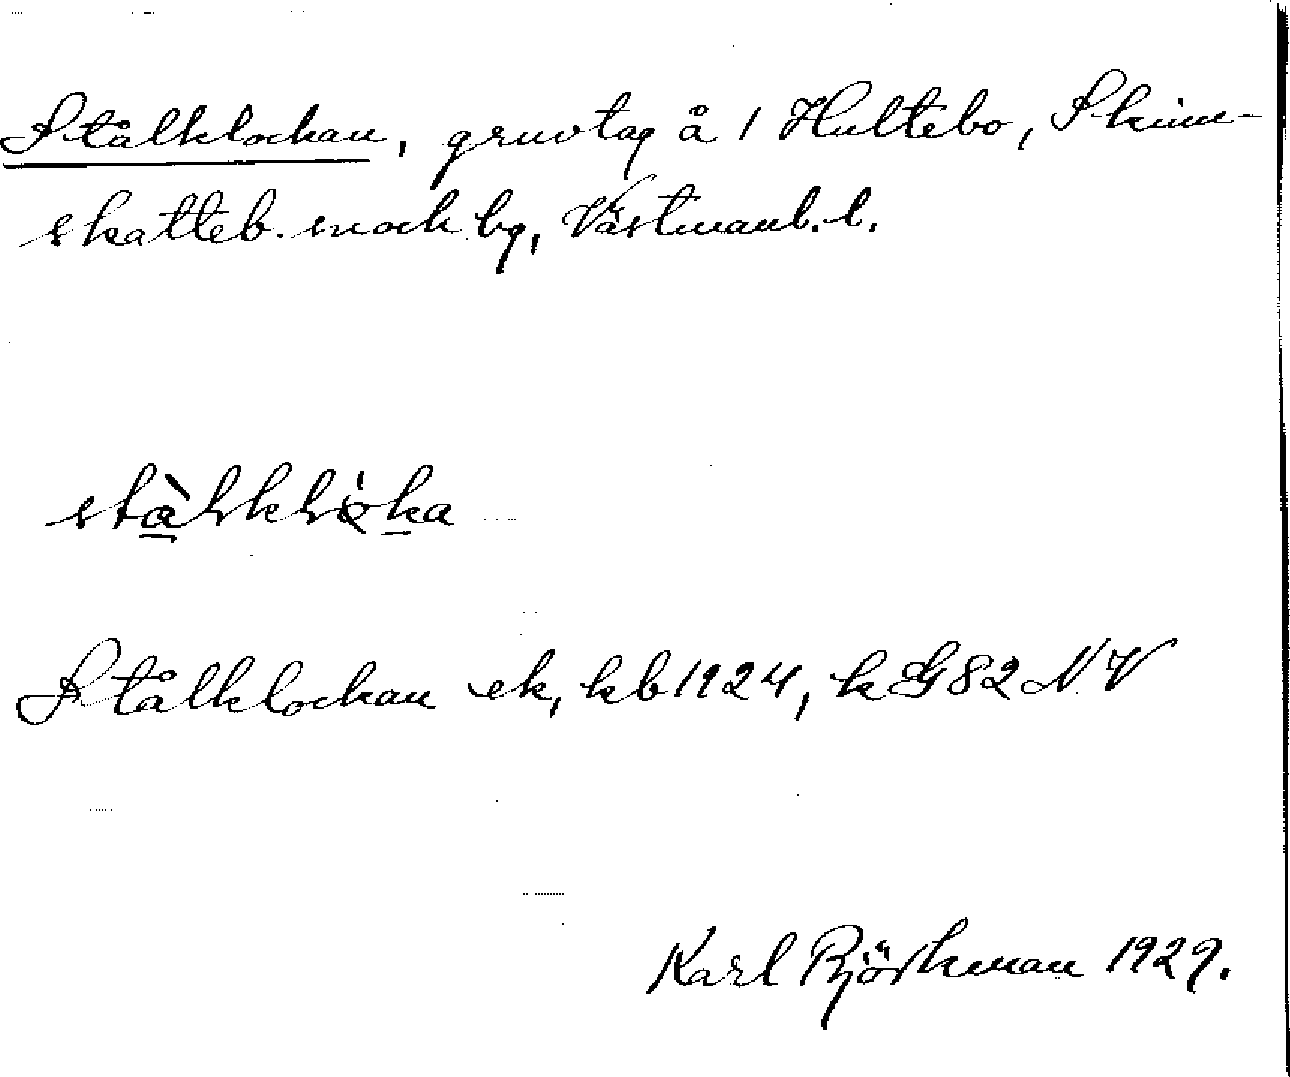 Stålklockan, gruvtag å 1 Hultebo, Skinn-
skatteb. sn och bg, Västmanl. l.
Stålklockan ek, kb 1924, k G82 NV
Karl Björkman 1929.